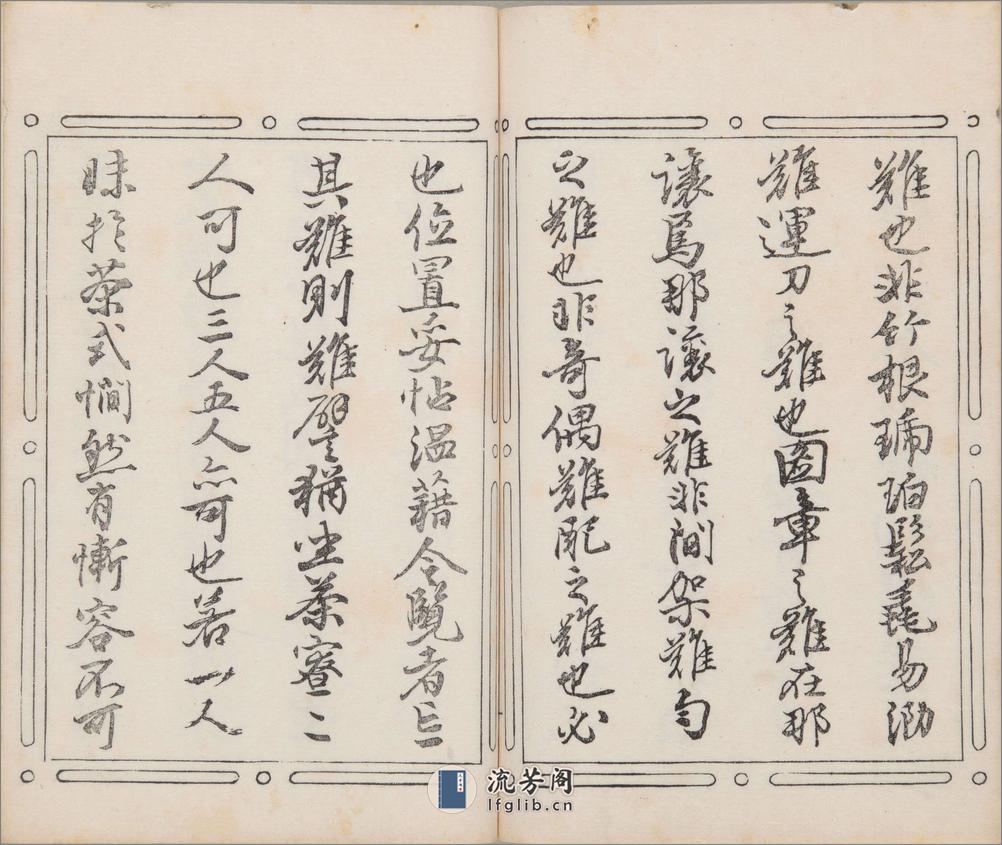 難也非竹根瑪珀鬆毳易泐
難運刀之難也圖章之難在那
讓焉那讓之難非間架難勻
之難也非奇偶難配之難也必
也位置妥帖温藉令覽者忘
其難則難譬猶坐茶寮二
人可也三人五人亦可也若一人
昧於茶式憪然有慚容不可
流芳阁
lfglib.cn